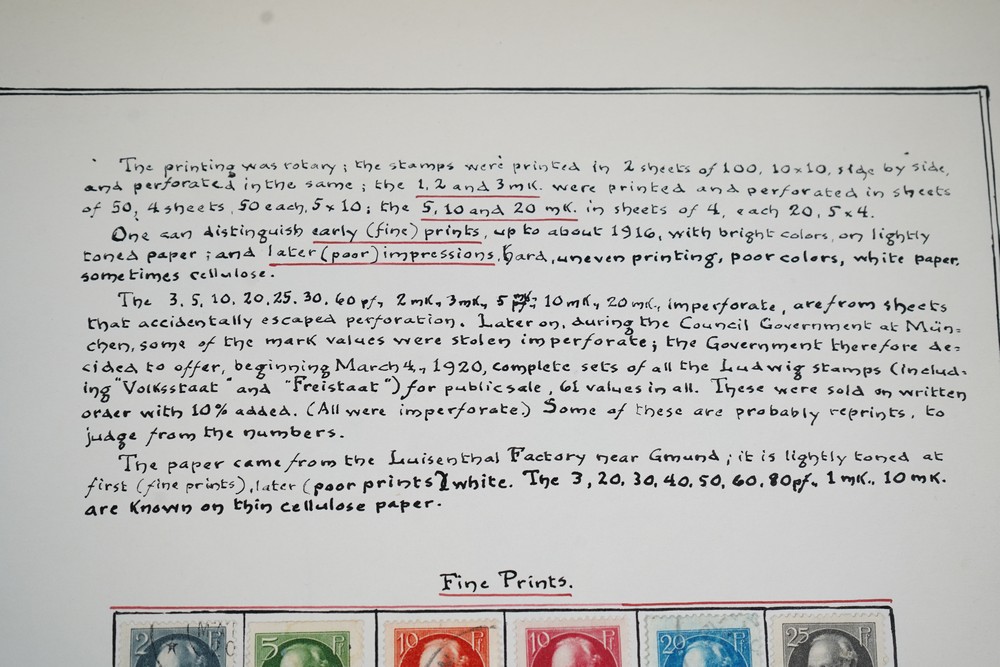 The printing was rotary; the stamps were printed in 2 sheets of 100, 10x10, side by side,
and perforated in the same; the 1, 2 and 3 mK. were printed and perforated in sheets
of 50, 4 sheets, 50 each, 5x10; the 5, 10 and 20 mK. in sheets of 4, each 20, 5x4.
One can distinguish early (fine) prints, up to about 1916, with bright colors, on lightly
toned paper; and later (poor) impressions, hard, uneven printing, poor colors, white paper,
sometimes cellulose.
The 3, 5, 10, 20, 25, 30, 60 pf., 2 mK., 3 mK., 5 mK., 10 mK., 20 mK., imperforate, are from sheets
that accidentally escaped perforation. Later on, during the Council Government at Mün=
chen, some of the mark values were stolen imperforate; the Government therefore de=
cided to offer, beginning March 4., 1920, complete sets of all the Ludwig stamps (includ=
ing "Volksstaat" and "Freistaat") for public sale, 61 values in all. These were sold on written
order with 10% added. (All were imperforate.) Some of these are probably reprints, to
judge from the numbers.
The paper came from the Luisenthal Factory near Gmund; it is lightly toned at
first (fine prints), later (poor prints) white. The 3, 20, 30, 40, 50, 60, 80 pf., 1 mK., 10 mK.
are Known on thin cellulose paper.
Fine Prints.
2 Pf 5 Pf 10 Pf 10 Pf 20 Pf 25 Pf